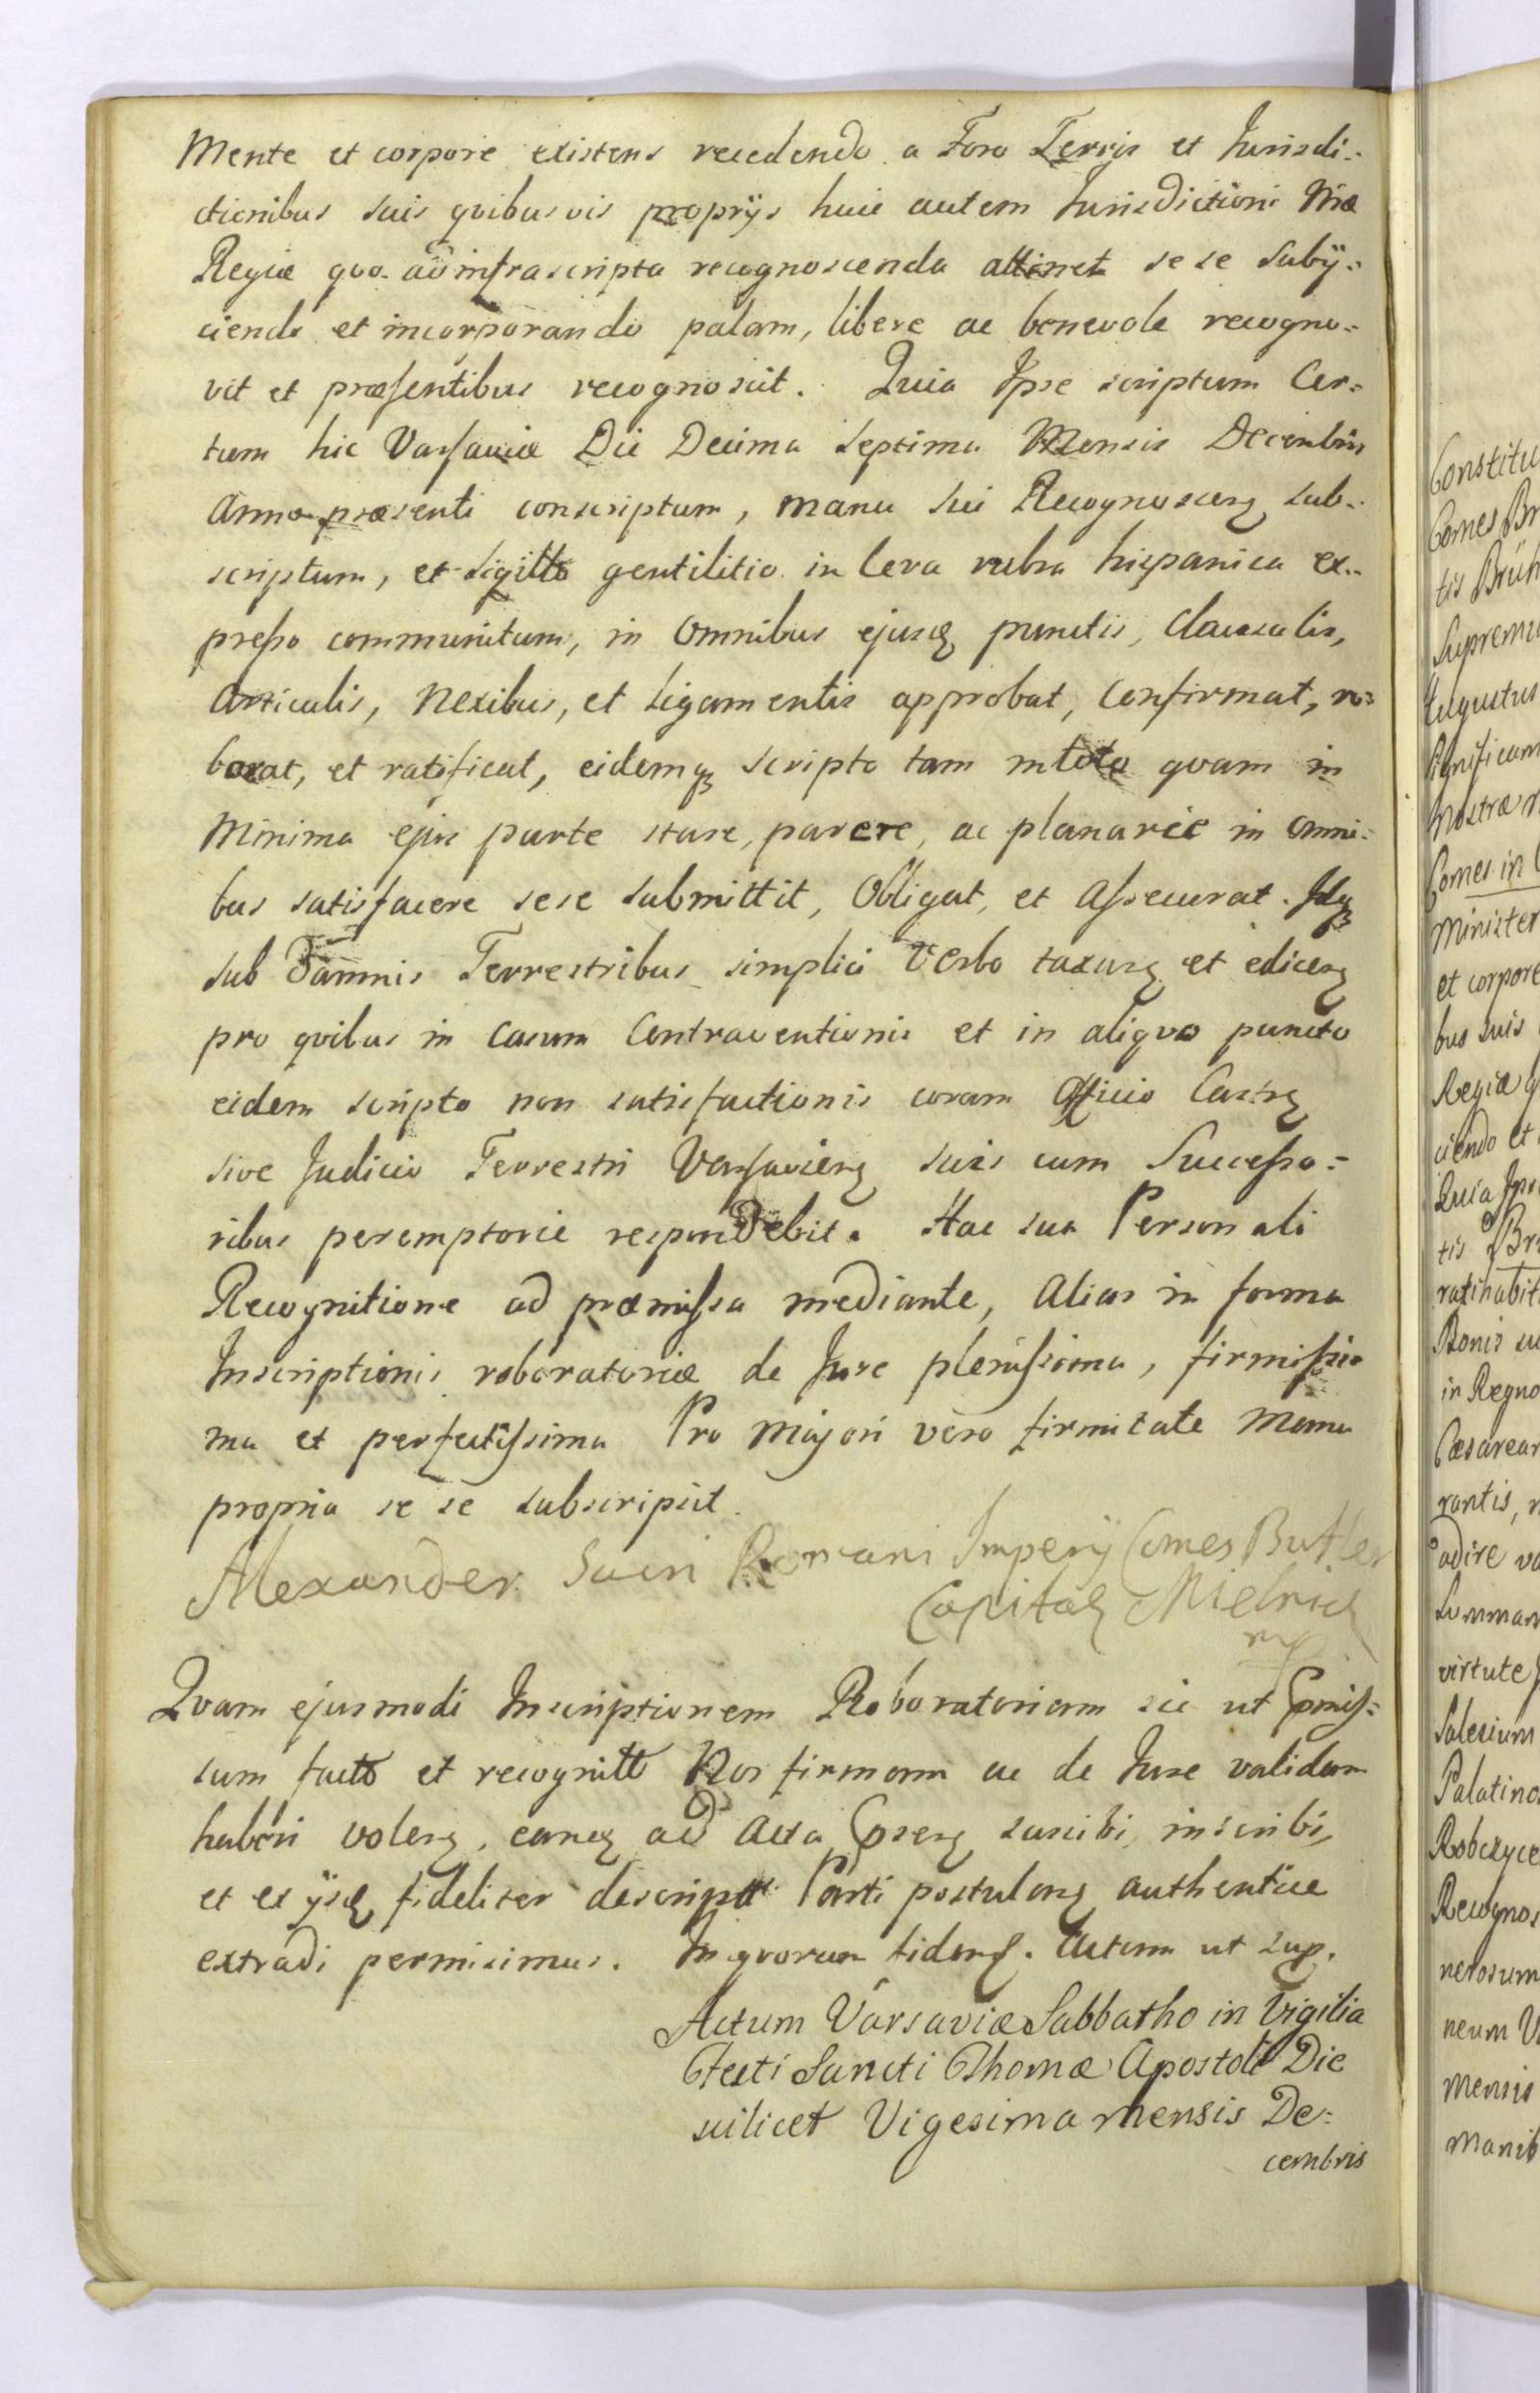 Mente et corpore existens recedendo a Foro Terris et Jurisdi:
ctionibus suis qvibusvis proprÿs huic autem Jurisdictioni Nræ
Regiæ qvo ad infrascripta recognoscenda attinet se se subÿ:
ciendo et incorporando palam, libere ac benevole recogno:
vit et præsentibus recognoscit. Quia Ipse scriptum Cer:
tum hic Varsaviæ Die Decima Septima Mensis Decembris
Anno præsenti conscriptum, manu sui Recognoscenʒ sub:
scriptum, et sigillo gentilitio in Cera rubra hispanica ex:
presso communitum, in omnibus ejusqʒ punctis, Clausulis,
Articulis, Nexibus, et Ligamentis approbat, Confirmat, ro:
borat, et ratificat, eidemqʒ scripto tam in toto qvam in
Minima ejus parte stare, parere, ac planarie in omni:
bus satisfacere sese submittit, Obligat, et Assecurat. Idqʒ
sub Damnis Terrestribus simplici Verbo taxanʒ et edicenʒ
pro qvibus in Casum Contraventionis et in aliqvo puncto
eidem scripto non satisfactionis coram Officio Castrʒ
sive Judicio Terrestri Varsavienʒ suis cum Successo:
ribus peremptorie respondebit. Hac sua Personali
Recognitione ad præmissa mediante, Alias in forma
Inscriptionis roboratoriæ de Jure plenissima, firmissi:
ma et perfectissima Pro Majori vero firmitate Manu
propria se se subscripsit.
Alexander Sacri Romani Imperÿ Comes Butler
Capitaʒ Mielnicʒ
mp
Qvam ejusmodi Inscriptionem Roboratoriam sic ut pmis:
sum factã et recognitã Nos firmam ac de Jure validam
haberi volenʒ, eamqʒ ad Acta pzenʒ suscibi, inscribi,
et ex ÿsdʒ fideliter descriptã Parti postulanʒ authentice
extradi permisimus. In qvorum fidemʒ. Actum ut sup.
Actum Varsaviæ Sabbatho in Vigilia
Festi Sancti Thomæ Apostoli Die
scilicet Vigesima mensis De:
cembris
Constitu
Comes Br
tis Brüh
Supremu
Augustus
significam
nostræ
Comes in
Minister
et corpore
bus suis
Regiæ q
ciendo et
Quia Ips
tis Br
ratihabit
Bonis su
in Regno
Cæsarear
rantis,
adire va
Summam
virtute
Salesium
Palatinos
Robczyce
Recognos
nerosum
neum
Mensis
Manib